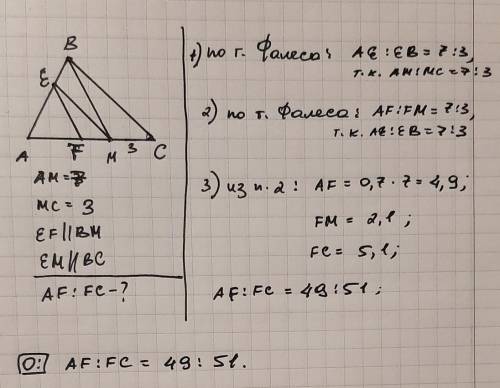 B
E
A F M 3 C
AM = 7
MC = 3
EF || BM
EM || BC
AF : FC - ?
1) по т. Фалеса: AE : EB = 7 : 3,
т.к. AM : MC = 7 : 3
2) по т. Фалеса: AF : FM = 7 : 3,
т.к. AE : EB = 7 : 3
3) из п. 2: AF = 0,7 · 7 = 4,9;
FM = 2,1;
FC = 5,1;
AF : FC = 49 : 51;
О: AF : FC = 49 : 51.